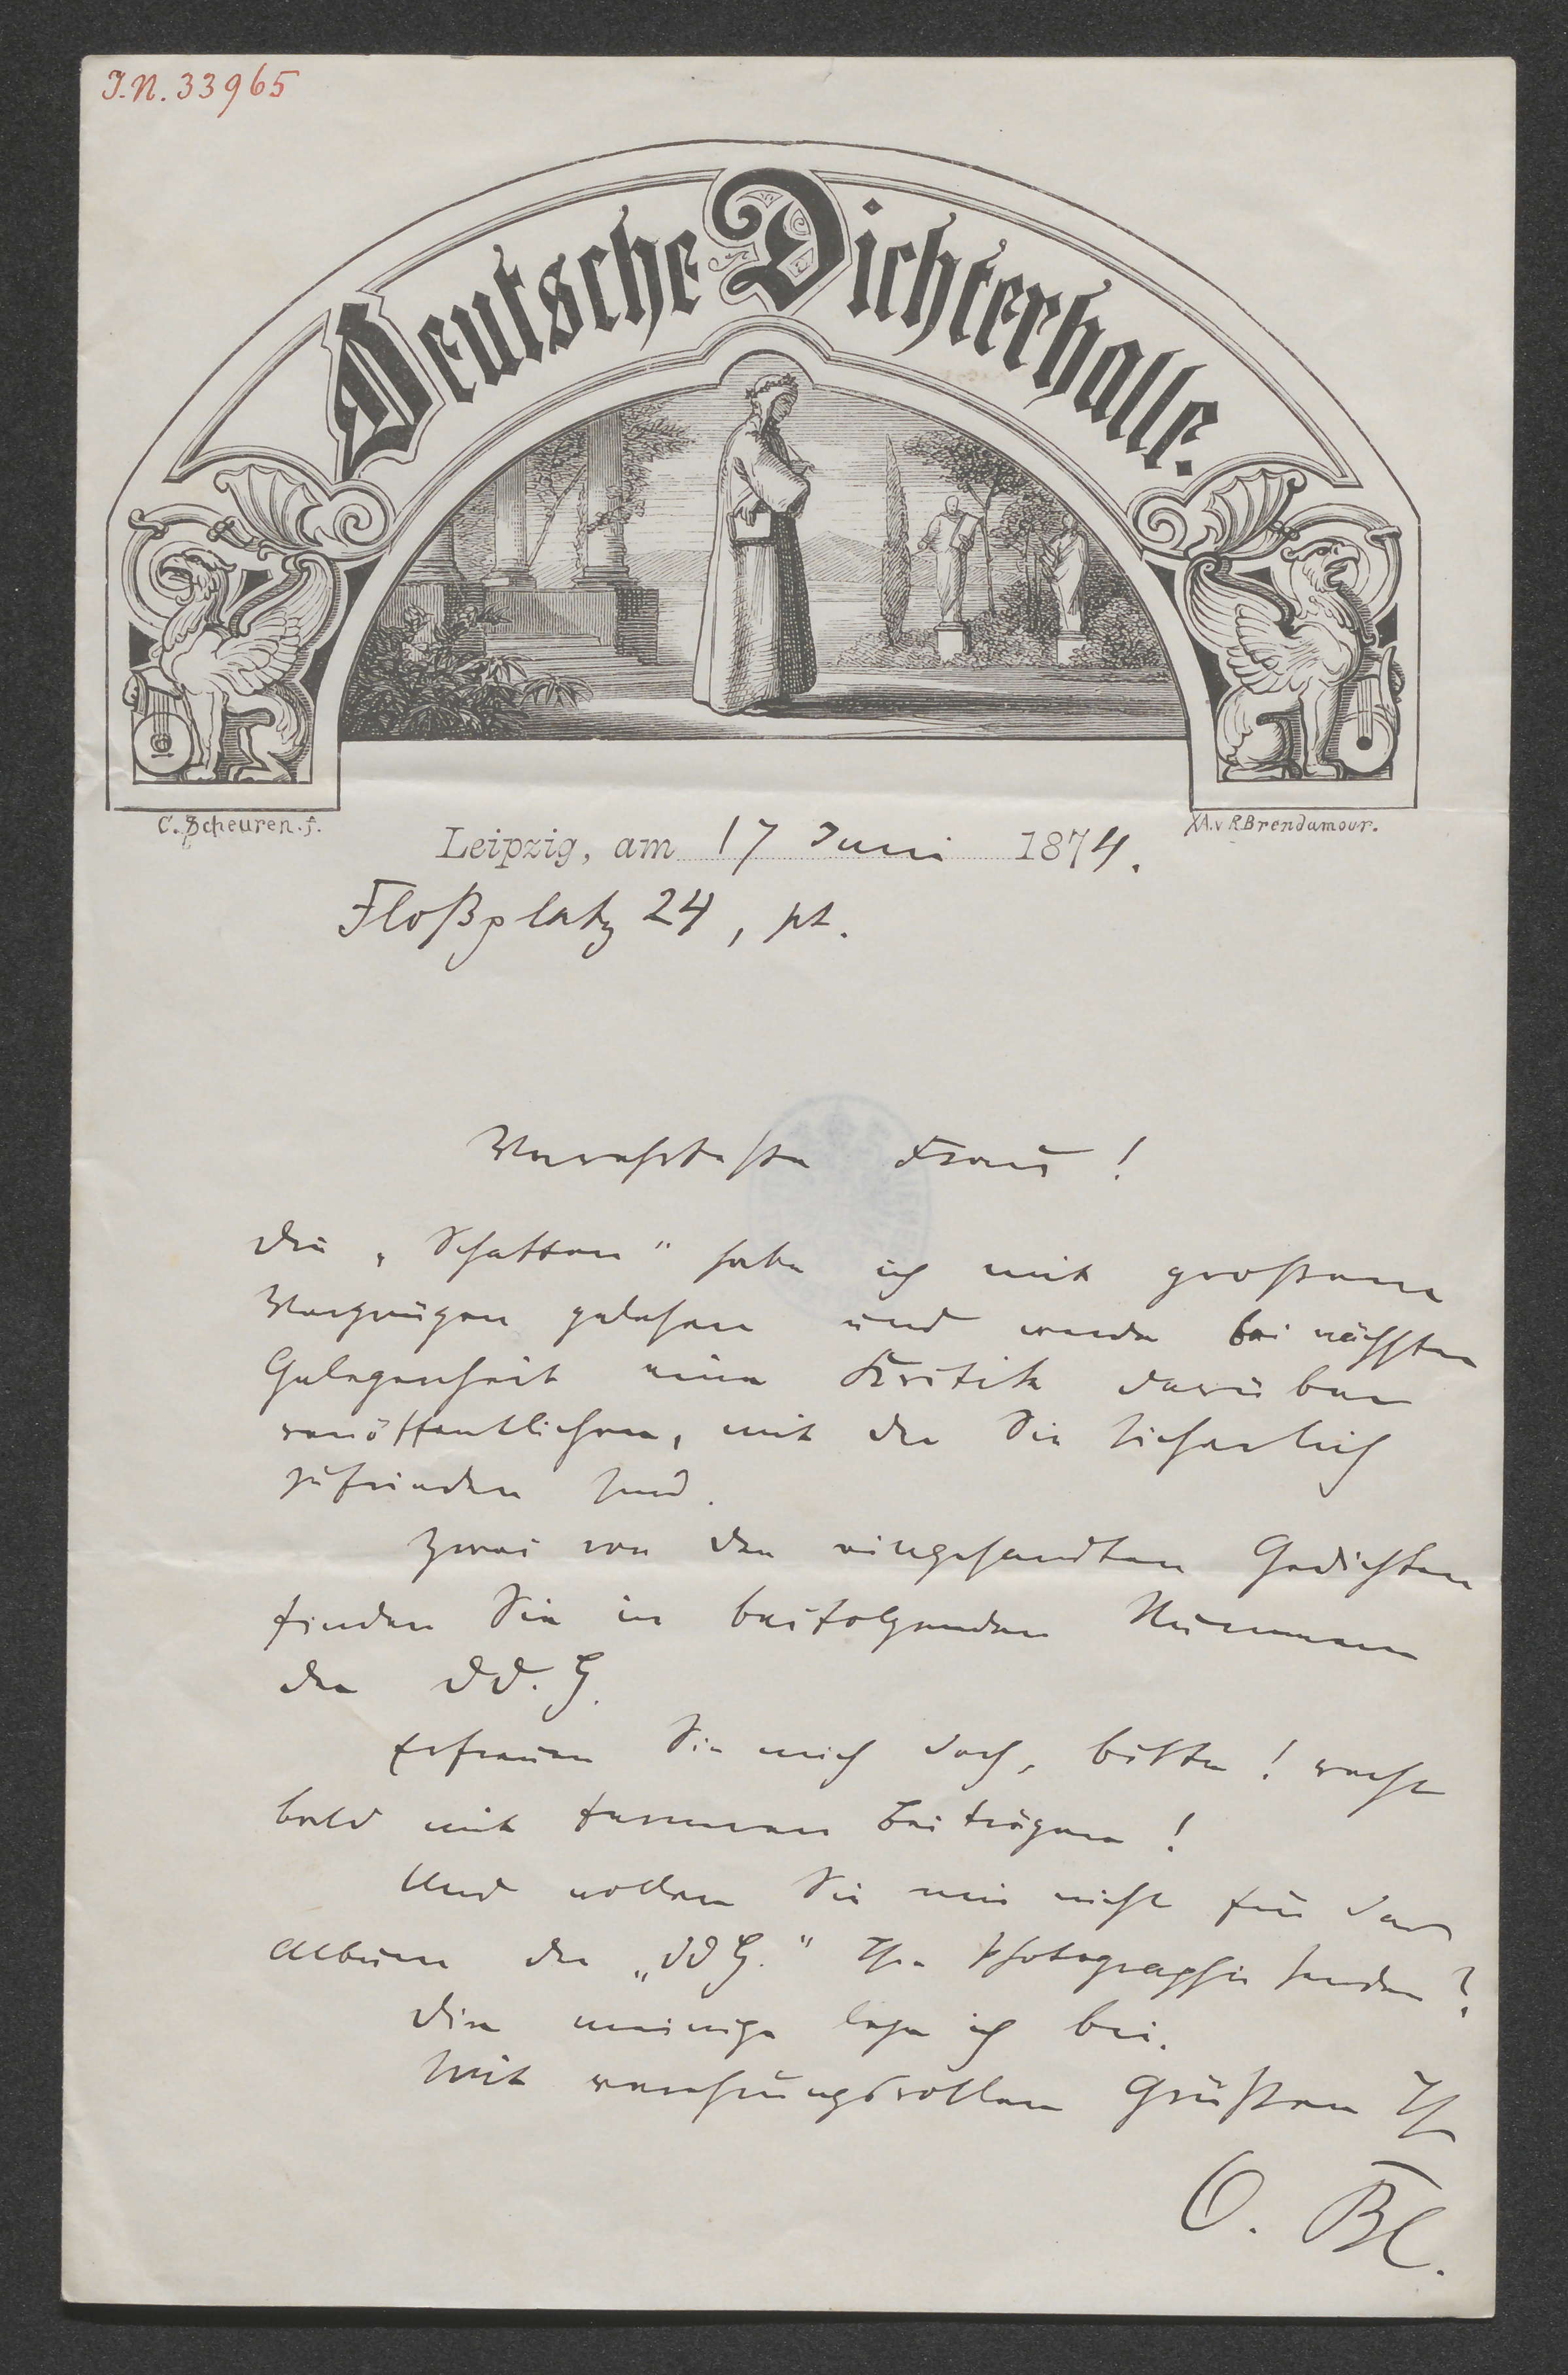 J.N. 33965
Deutsche Dichterhalle.
C. Scheuren. f.
XA. v R. Brendamour.
Leipzig, am 17 Juni 1874.
Floßplatz 24, pt.
Verehrteste Frau!
Die „Schatten" habe ich mit großem
Vergnügen gelesen und werde bei nächster
Gelegenheit eine Kritik darüber
veröffentlichen, mit der Sie sicherlich
zufrieden sind.
Zwei von den eingesandten Gedichten
finden Sie in beifolgenden Nummern
der DD. H.
Erfreuen Sie mich doch, bitte! recht
bald mit ferneren Beiträgen!
Und wollen Sie mir nicht für das
Album der „DDH." Ihre Photographie senden?
Die meinige lege ich bei.
Mit verehrungsvollen Grüßen Ihr
O. Bl.